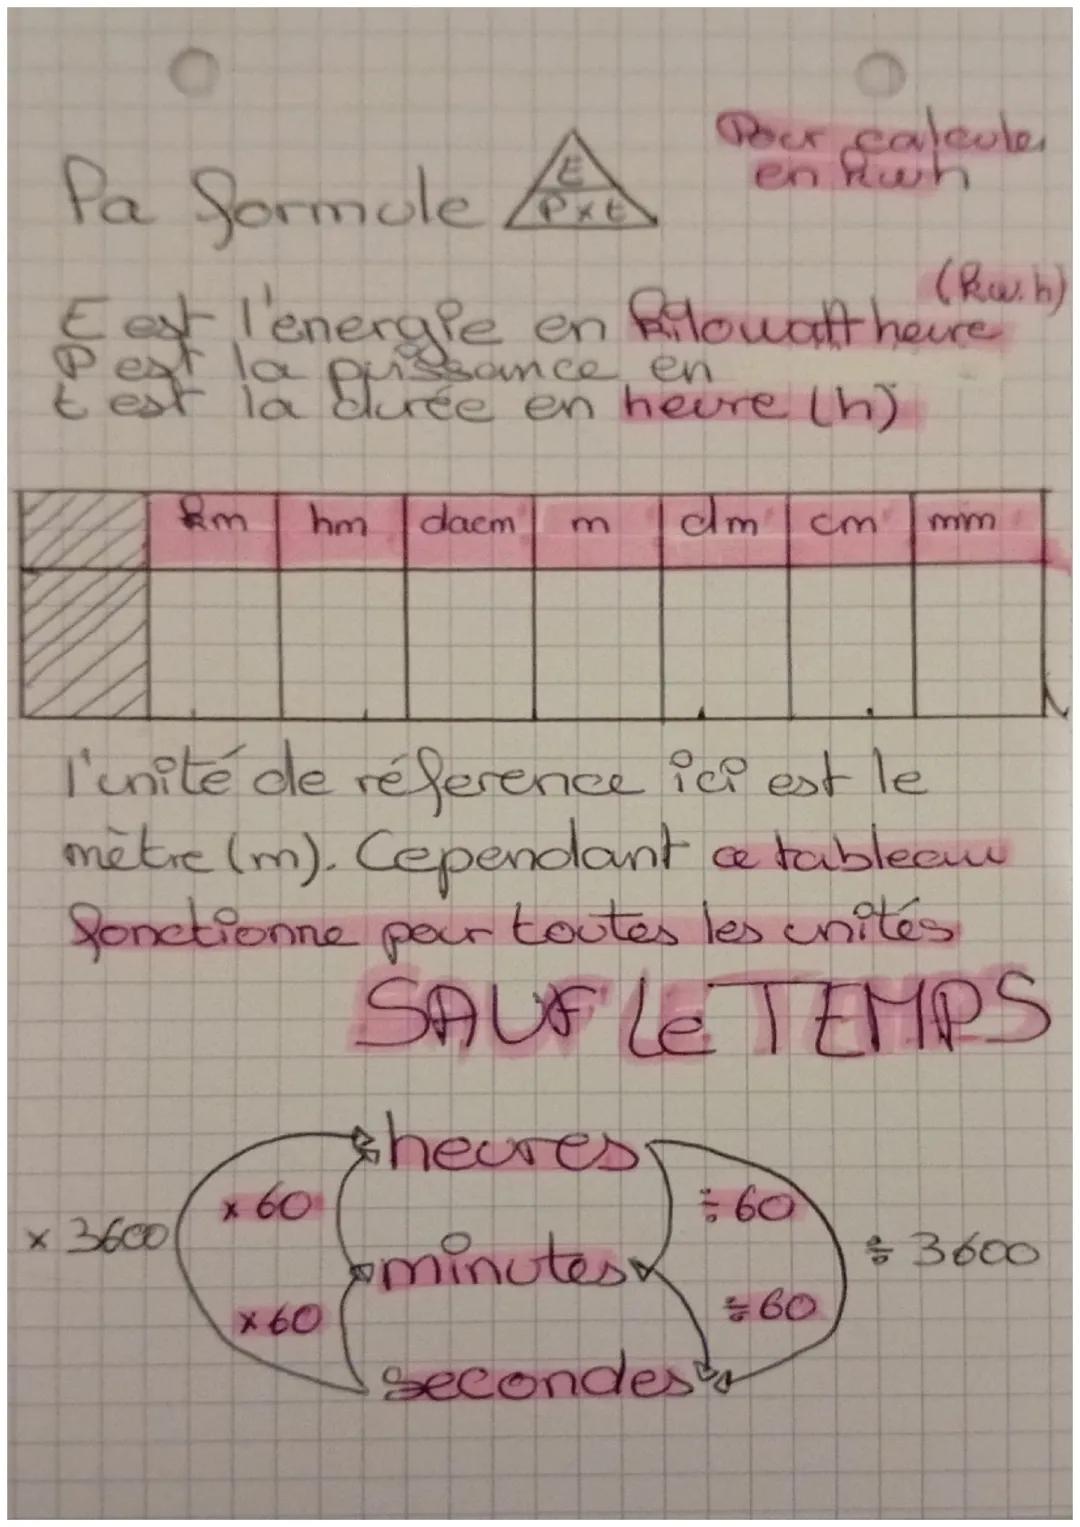 Pour calculer
en kwh
la formule
E
P x t
(kw.h)
E est l'energie en kilowatt heure
P est la puissance en
t est la durée en heure (h)
km hm dacm m dm cm mm
l'unité de réference ici est le
mètre (m). Cependant ce tableau
fonctionne pour toutes les unités
SAUF Le TEMPS
heures
x 60 ÷ 60
x 3600 ÷ 3600
minutes
x 60 ÷ 60
secondes